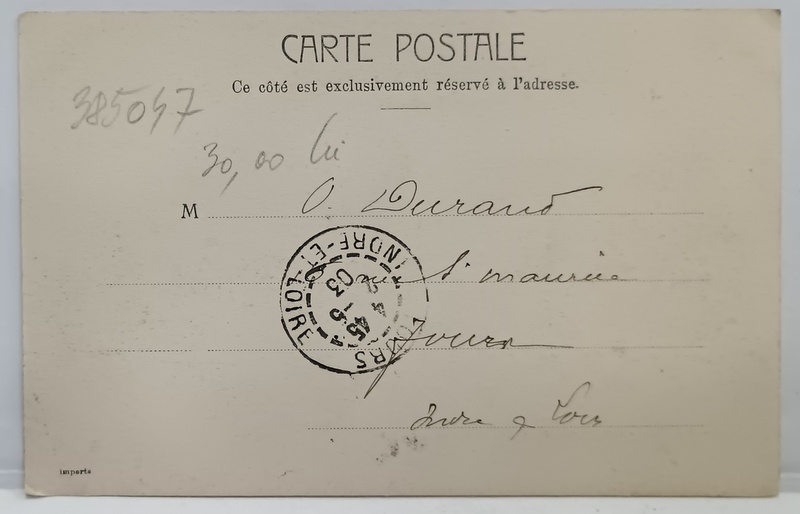 CARTE POSTALE
Ce côté est exclusivement réservé à l'adresse.
385047
30,00 lei
M O. Durand
rue St maurice
Tours
Indre & Loire
TOURS
INDRE-ET-LOIRE
03
imperts